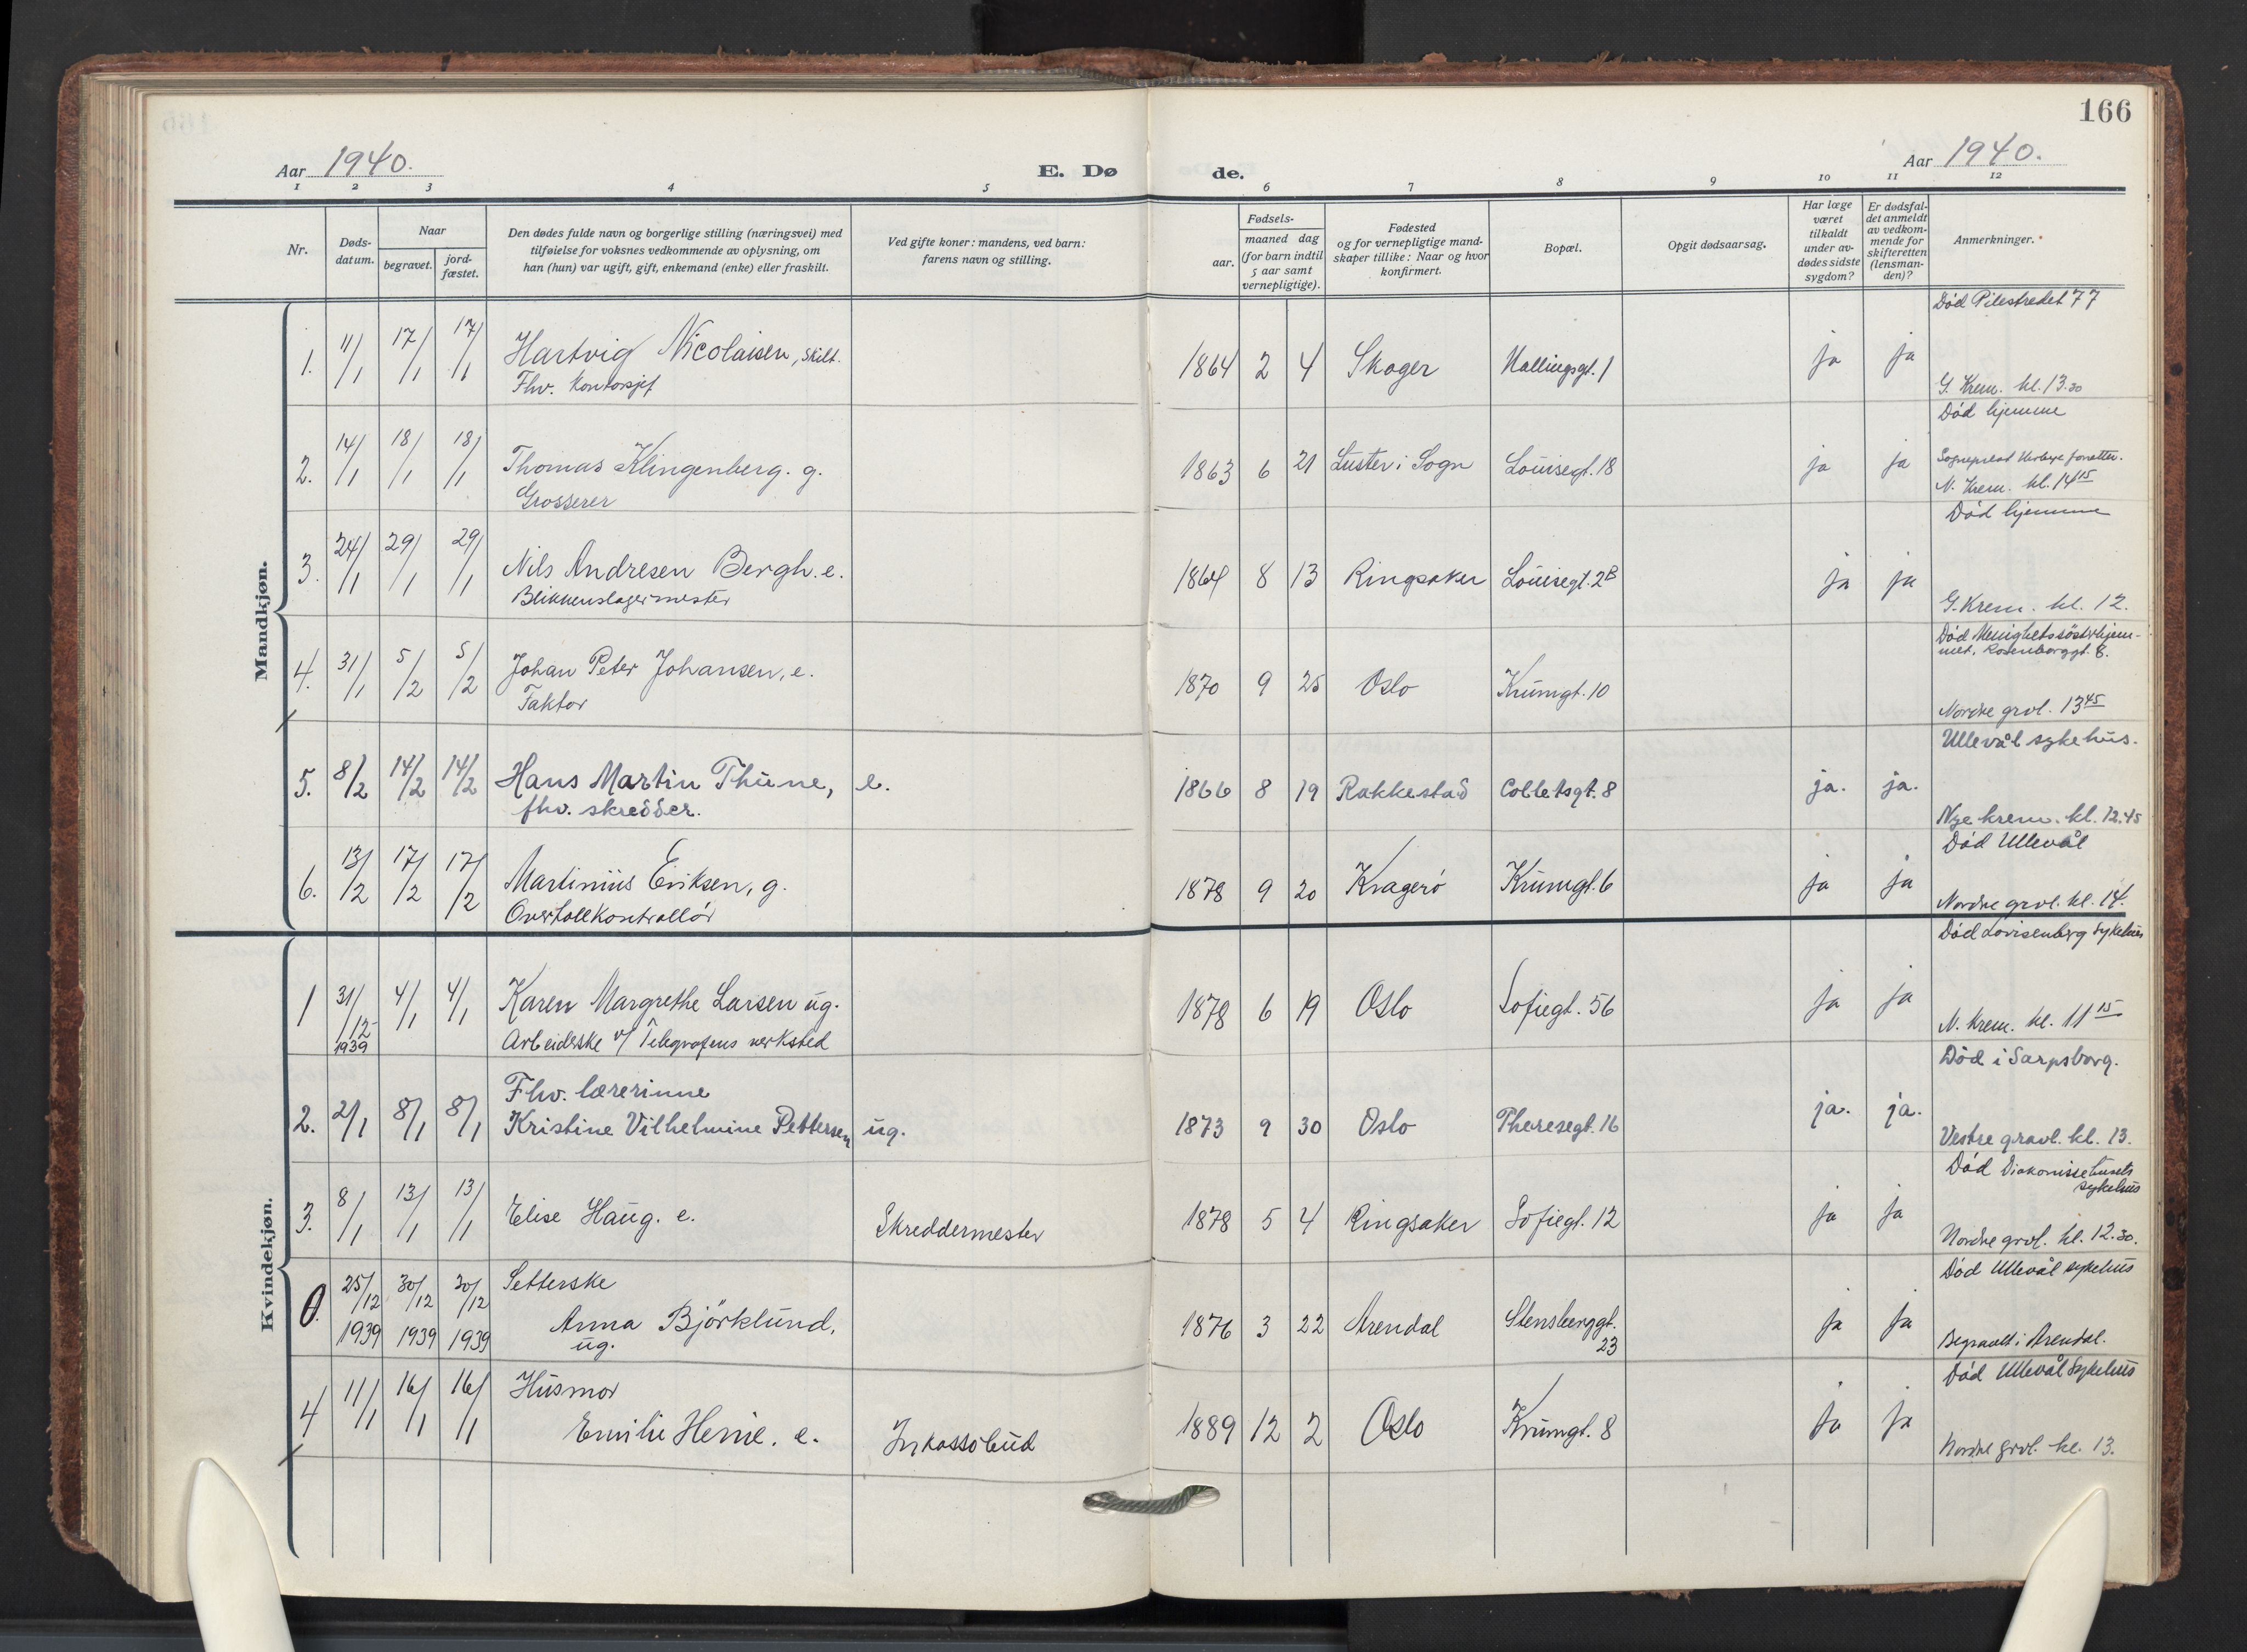 166
Aar 1940. E. Døde. Aar 1940.
1 2 3 4 5 6 7 8 9 10 11 12
Nr.
Døds-
datum.
Naar
begravet.
jord-
fæstet.
Den dødes fulde navn og borgerlige stilling (næringsvei) med
tilføielse for voksnes vedkommende av oplysning, om
han (hun) var ugift, gift, enkemand (enke) eller fraskilt.
Ved gifte koner: mandens, ved barn:
farens navn og stilling.
Fødsels-
aar.
maaned dag
(for barn indtil
5 aar samt
vernepligtige).
Fødested
og for vernepligtige mand-
skaper tillike: Naar og hvor
konfirmert.
Bopæl.
Opgit dødsaarsag.
Har læge
været
tilkaldt
under av-
dødes sidste
sygdom?
Er dødsfal-
det anmeldt
av vedkom-
mende for
skifteretten
(lensman-
den)?
Anmerkninger.
Mandkjøn.
Død Pilestredet 77
1. 11/1 17/1 17/1 Hartvig Nicolaisen, skilt. 1864 2 4 Skoger Hallingsgt. 1 ja ja
Fhv. Kontorsjef
G. Krem. kl. 13.30
Død hjemme
2. 14/1 18/1 18/1 Thomas Klingenberg. g. 1863 6 21 Luster i Sogn Louisegt. 18 ja ja
Grosserer
Sogneprest forretter.
N. Krem. kl. 14 15
Død hjemme
3. 24/1 29/1 29/1 Nils Andresen Bergh. e. 1864 8 13 Ringsaker Louisegt. 2B ja ja
Blikkenslagermester
G. Krem. kl. 12.
Død Menighetssøsterhjem-
met, Rosenborggt. 8.
4. 31/1 5/2 5/2 Johan Peter Johansen, e. 1870 9 25 Oslo Krumgt. 10
Faktor
Nordre grvl. 13 45
Ullevål sykehus.
5. 8/2 14/2 14/2 Hans Martin Thune, e. 1866 8 19 Rakkestad Colletsgt. 8 ja. ja.
fhv. skredder.
Nye krem. kl. 12.45
Død Ullevål
6. 13/2 17/2 17/2 Martinius Eriksen, g. 1878 9 20 Kragerø Krumgt. 6 ja ja
Overtollkontrollør
Nordre grvl. kl. 14.
Kvindekjøn.
Død Lovisenberg sykehus
1 31/12 1939 4/1 4/1 Karen Margrethe Larsen ug. 1878 6 19 Oslo Sofiegt. 56 ja ja
Arbeiderske v/ Telegrafens verksted
N. Krem. kl. 11 15
Død i Sarpsborg.
Fhv. lærerinne
2. 2/1 8/1 8/1 Kristine Vilhelmine Pettersen ug. 1873 9 30 Oslo Theresegt. 16 ja. ja.
Vestre gravl. kl. 13.
Død Diakonissehusets
sykehus
3. 8/1 13/1 13/1 Elise Haug. e. Skreddermester 1878 5 4 Ringsaker Sofiegt. 12 ja ja
Nordre grvl. kl. 12.30.
Død Ullevål sykehus
0. 25/12 1939 30/12 1939 30/12 1939 Setterske
Anna Björklund, 1876 3 22 Arendal Stensberggt. 23 ja ja
ug.
Begravet i Arendal.
Død Ullevål Sykehus
4 11/1 16/1 16/1 Husmor
Emilie Henie. e. Inkassobud 1889 12 2 Oslo Krumgt. 8 ja ja
Nordre grvl. kl. 13.